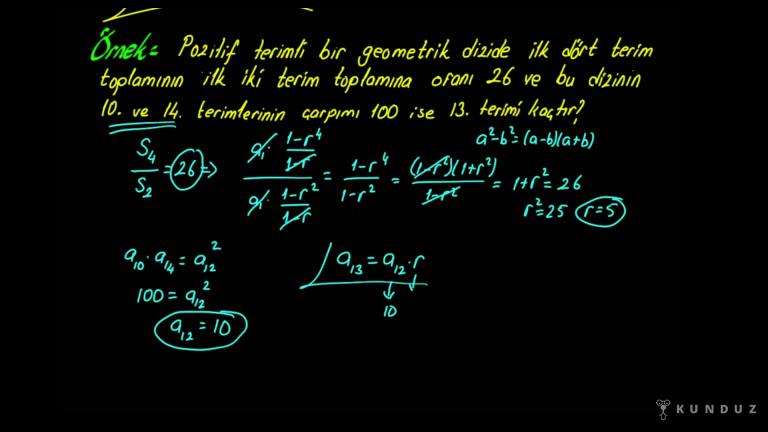 Örnek= Pozitif terimli bir geometrik dizide ilk dört terim
toplamının ilk iki terim toplamına oranı 26 ve bu dizinin
10. ve 14. terimlerinin çarpımı 100 ise 13. terimi kaçtır?
a²-b²=(a-b)(a+b)
S₄/S₂ = 26 => (a₁ · (1-r⁴)/(1-r))/(a₁ · (1-r²)/(1-r)) = (1-r⁴)/(1-r²) = ((1-r²)(1+r²))/(1-r²) = 1+r² = 26
r²=25 r=5
a₁₀ · a₁₄ = a₁₂² a₁₃ = a₁₂ · r
100 = a₁₂² 10
a₁₂ = 10
KUNDUZ